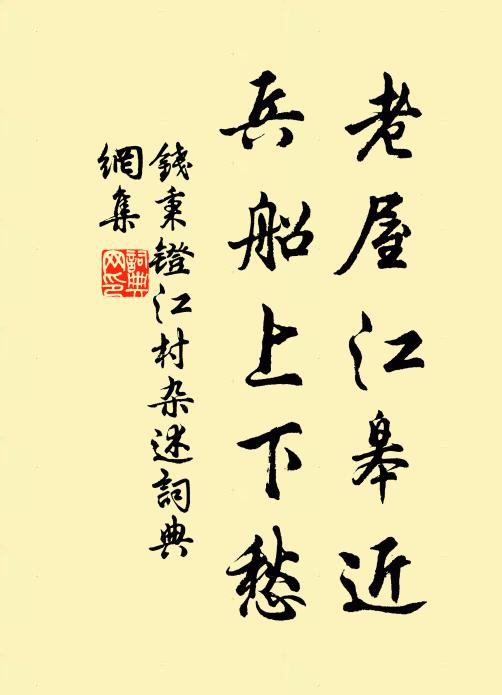 老屋江皋近
兵船上下愁
錢秉鐙江村杂述詞典
網集
詞典
网印